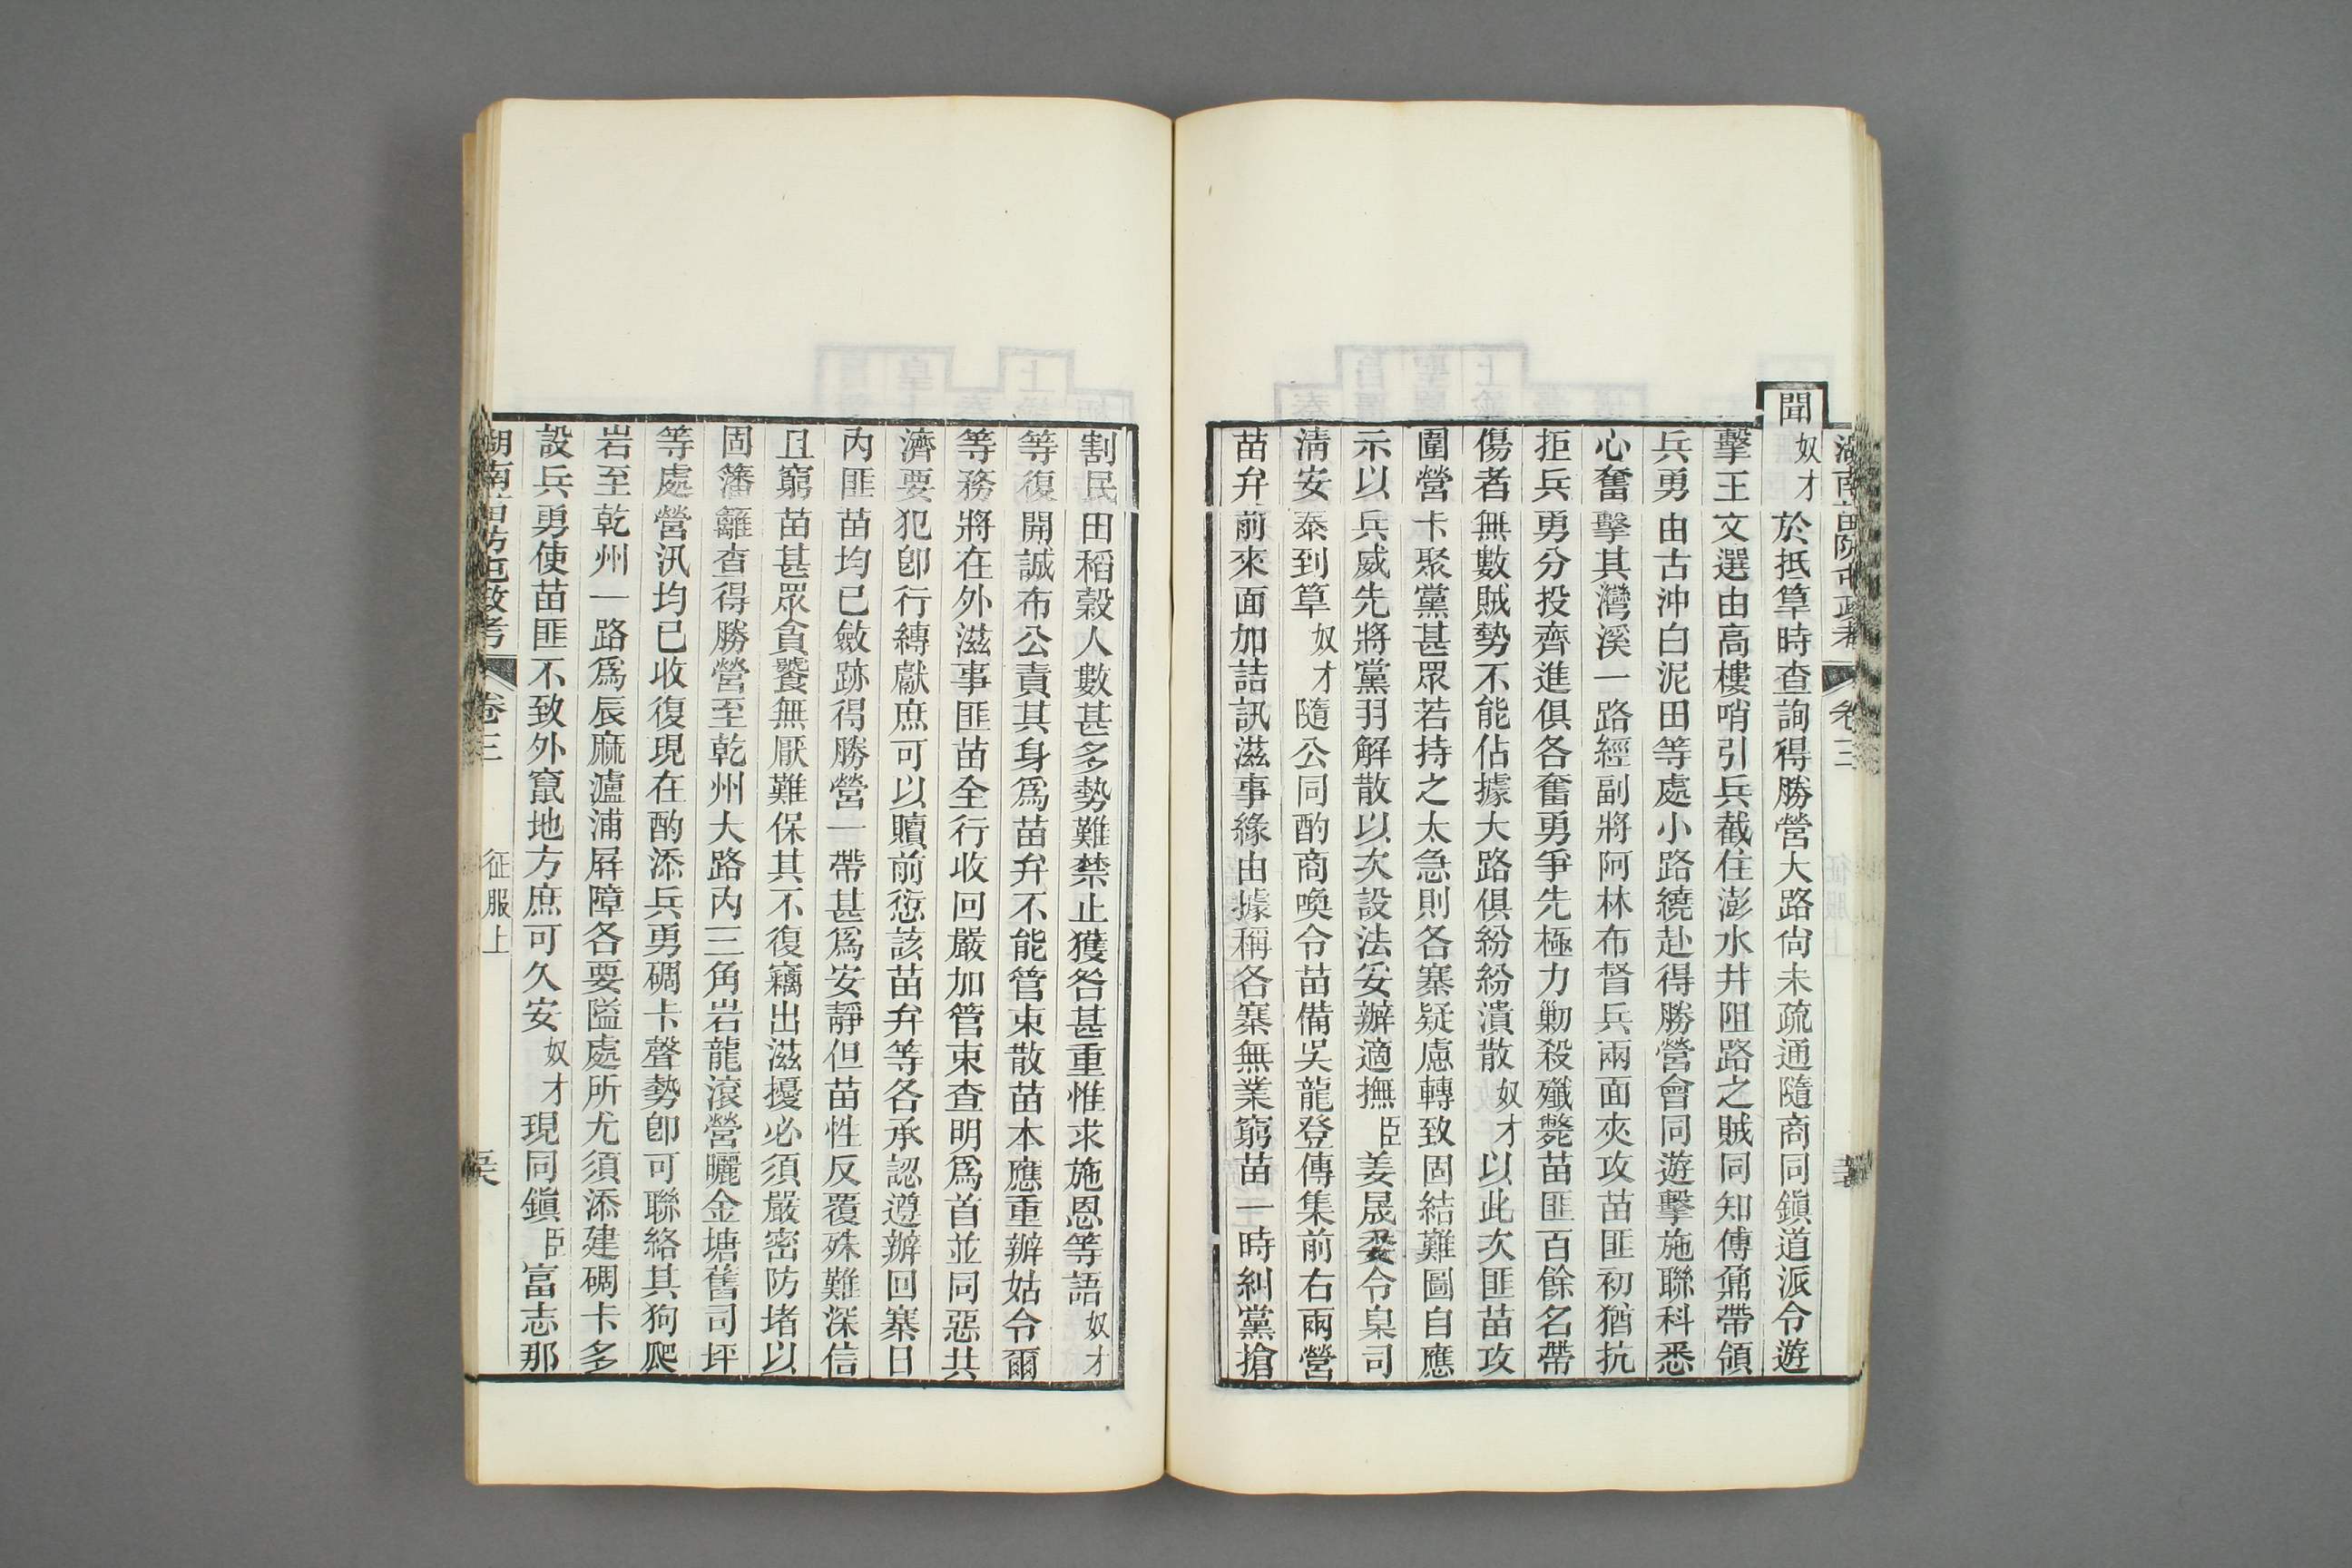 湖南苗防屯政考 卷三
聞奴才於抵筸時查詢得勝營大路尙未疏通隨商同鎭道派令遊
擊王文選由高樓哨引兵截住澎水井阻路之賊同知傅鼐帶領
兵勇由古沖白泥田等處小路繞赴得勝營會同遊擊施聯科悉
心奮擊其灣溪一路經副將阿林布督兵兩面夾攻苗匪初猶抗
拒兵勇分投齊進俱各奮勇爭先極力勦殺殲斃苗匪百餘名帶
傷者無數賊勢不能佔據大路俱紛紛潰散奴才以此次匪苗攻
圍營卡聚黨甚眾若持之太急則各寨疑慮轉致固結難圖自應
示以兵威先將黨羽解散以次設法妥辦適撫臣姜晟委令臬司
淸安泰到筸奴才隨公同酌商喚令苗備吳龍登傳集前右兩營
苗弁前來面加詰訊滋事緣由據稱各寨無業窮苗一時糾黨搶
割民田稻穀人數甚多勢難禁止獲咎甚重惟求施恩等語奴才
等復開誠布公責其身爲苗弁不能管束散苗本應重辦姑令爾
等務將在外滋事匪苗全行收回嚴加管束查明爲首並同惡共
濟要犯卽行縛獻庶可以贖前愆該苗弁等各承認遵辦回寨日
內匪苗均已斂跡得勝營一帶甚爲安靜但苗性反覆殊難深信
且窮苗甚眾貪饕無厭難保其不復竊出滋擾必須嚴密防堵以
固藩籬查得勝營至乾州大路內三角岩龍滾營曬金塘舊司坪
等處營汛均已收復現在酌添兵勇碉卡聲勢卽可聯絡其狗爬
岩至乾州一路爲辰麻瀘浦屛障各要隘處所尤須添建碉卡多
設兵勇使苗匪不致外竄地方庶可久安奴才現同鎭臣富志那
湖南苗防屯政考 卷三 征服上